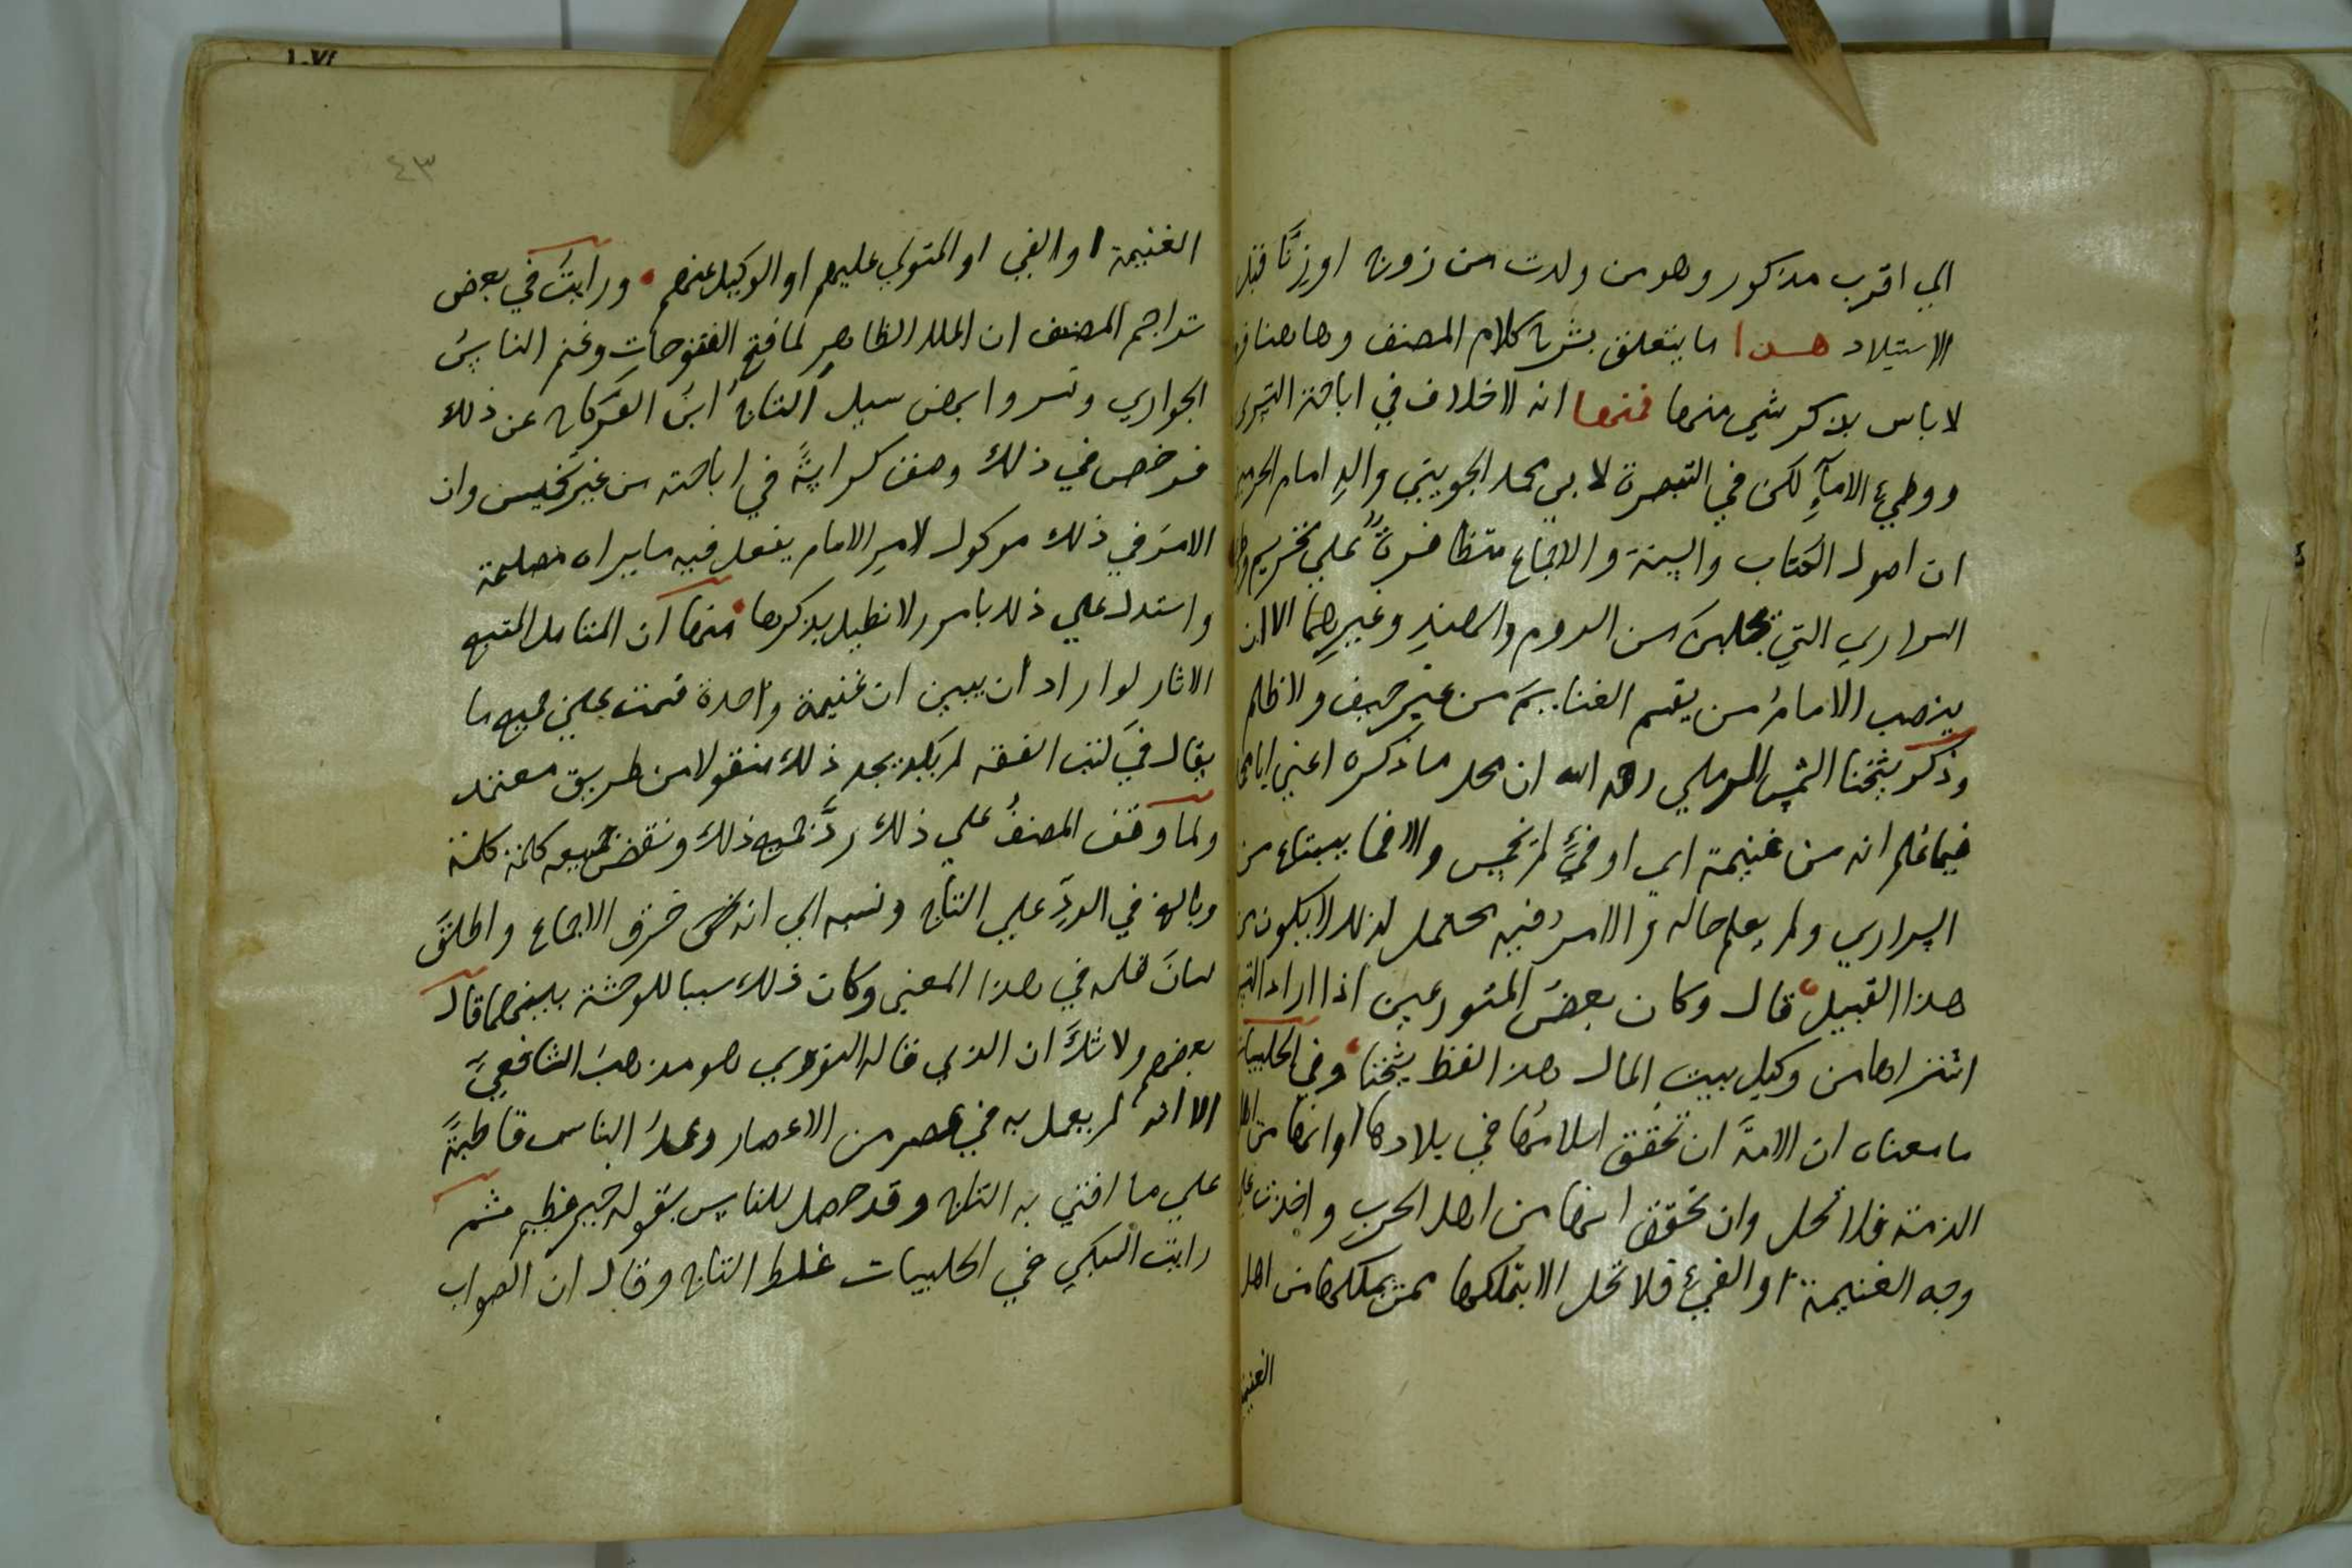 الي اقرب مذكور وهو من ولدت من زوج اوزنًا قبل
الاستيلاد هذا ما يتعلق بشرح كلام المصنف وهاهنا
لا باس بذكر شي منها فمنها انه لا خلاف في اباحة التسري
ووطيء الامآءِ لكن في التبصرة لابي محمد الجويني والدِ امام الحرمين
ان اصول الكتاب والسنة والاجماع متظافرةٌ علي تحريم
السراري التي تجلب من الروم والهندِ وغيرِهما الا ان
ينصب الامامُ من يقسم الغنايمَ من غير حيف ولا ظلم
وذكر شيخنا الشمس الرملي رحمه الله ان محل ما ذكره اعني ابا محمد
فيما علم انه من غنيمة اي اوفيءٍ لم تخمس والا فما يبتاع من
السراري ولم يعلم حاله والامرُ فيه محتمل لذلك لا يكون من
هذا القبيل قال وكان بعضُ المتورعين اذا اراد التسري
اشتراها من وكيل بيت المال هذا لفظ شيخنا وفي الحلبيات
ما معناه ان الامةَ ان تحقق اسلامُها في بلادها او انها من اهل
الذمة فلا تحل وان تحقق انها من اهل الحرب واخذت علي
وجه الغنيمة او الفيء فلا تحل الا بتملكها ممن يملكها من اهل
الغنيمة
٤٣
الغنيمة او الفي او المتولي عليهم او الوكيل عنهم ورايتُ في بعض
تراجم المصنف ان الملك الظاهر لما فتح الفتوحاتِ وغنم الناسُ
الجواري وتسروا بهن سيل التاجُ ابنُ الفركاح عن ذلك
فرخص في ذلك وصنف كراسةً في اباحته من غير تخميس وان
الامرَ في ذلك موكول لامرِ الامام يفعل فيه ما يراه مصلحة
واستدل علي ذلك بامور لا نطيل بذكرها منها ان المتامل المتتبع
الاثار لو اراد ان يبين ان غنيمة واحدة قسمت علي جميع ما
يقال في كتب الفقه لم يكد يجد ذلك منقولا من طريق معتمد
ولما وقف المصنفُ علي ذلك ردَّ جميع ذلك ونقض جميعه كلمة كلمة
وبالغ في الردِّ علي التاج ونسبه الي انه خرق الاجماع واطلقَ
لسانَ قلمه في هذا المعني وكان ذلك سببا للوحشة بينهما قال
بعضهم ولا شكَّ ان الذي قاله النووي هو مذهبُ الشافعيِّ
الا انه لم يعمل به في عصر من الاعصار وعملُ الناس قاطبةً
علي ما افتي به التاج وقد حصل للناس بقوله خير عظيم ثم
رايت السبكي في الحلبيات غلط التاج وقال ان الصواب